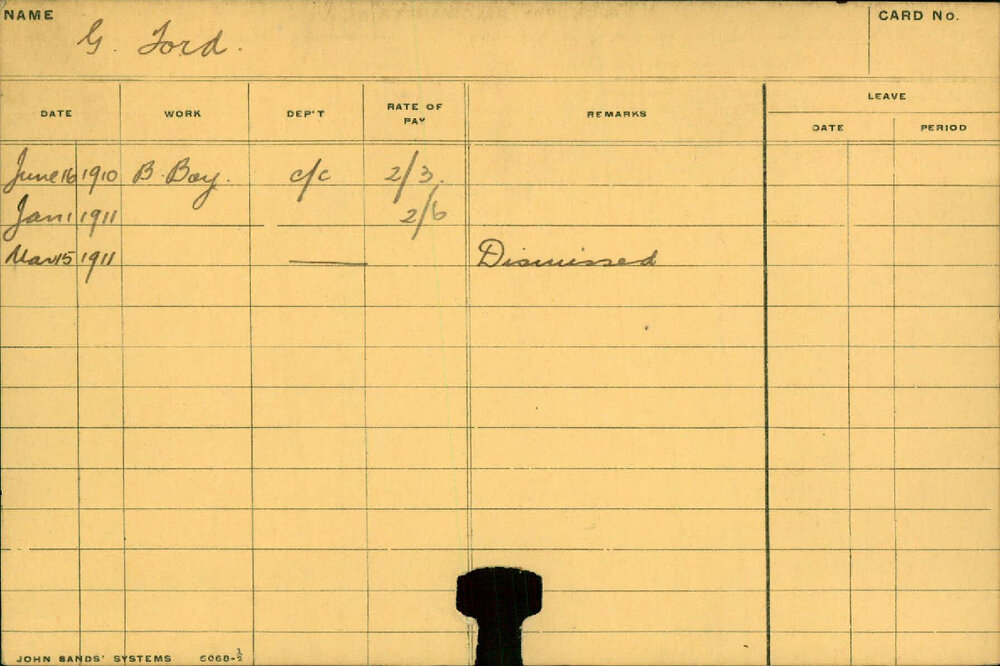 NAME
G. Ford.
CARD No.
DATE WORK DEP'T RATE OF PAY REMARKS LEAVE
DATE PERIOD
June 16 1910 B. Boy. c/c 2/3.
Jan 1 1911 2/6
Mar 15 1911 — Dismissed
JOHN SANDS' SYSTEMS